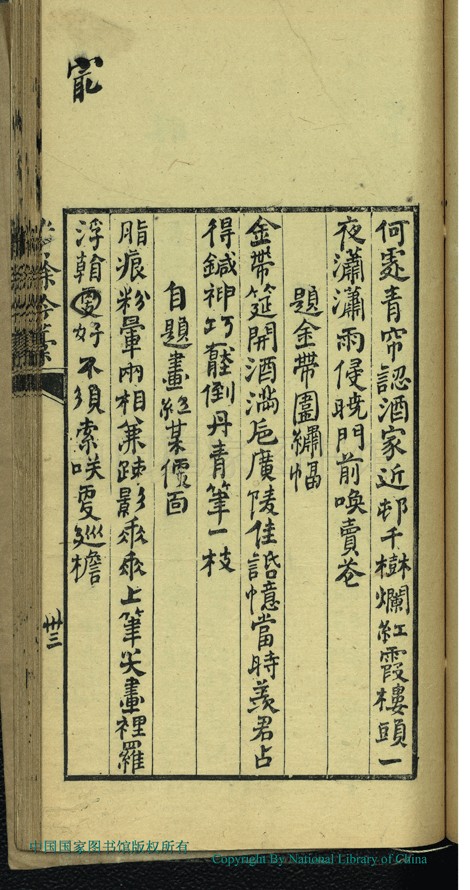 何處青帘認酒家近邨千樹爛紅霞樓頭一
夜瀟瀟雨侵曉門前喚賣花
題金帶圍繡幅
金帶筵開酒滿巵廣陵佳話憶當時羨君占
得鍼神巧壓倒丹青筆一枝
自題畫紅某便面
脂痕粉暈兩相兼疎影乖乖上筆尖畫裡羅
浮翰更好不須索咲更巡檐
寵
餘吟藁
卅三
中国国家图书馆版权所有
Copyright By National Library of China